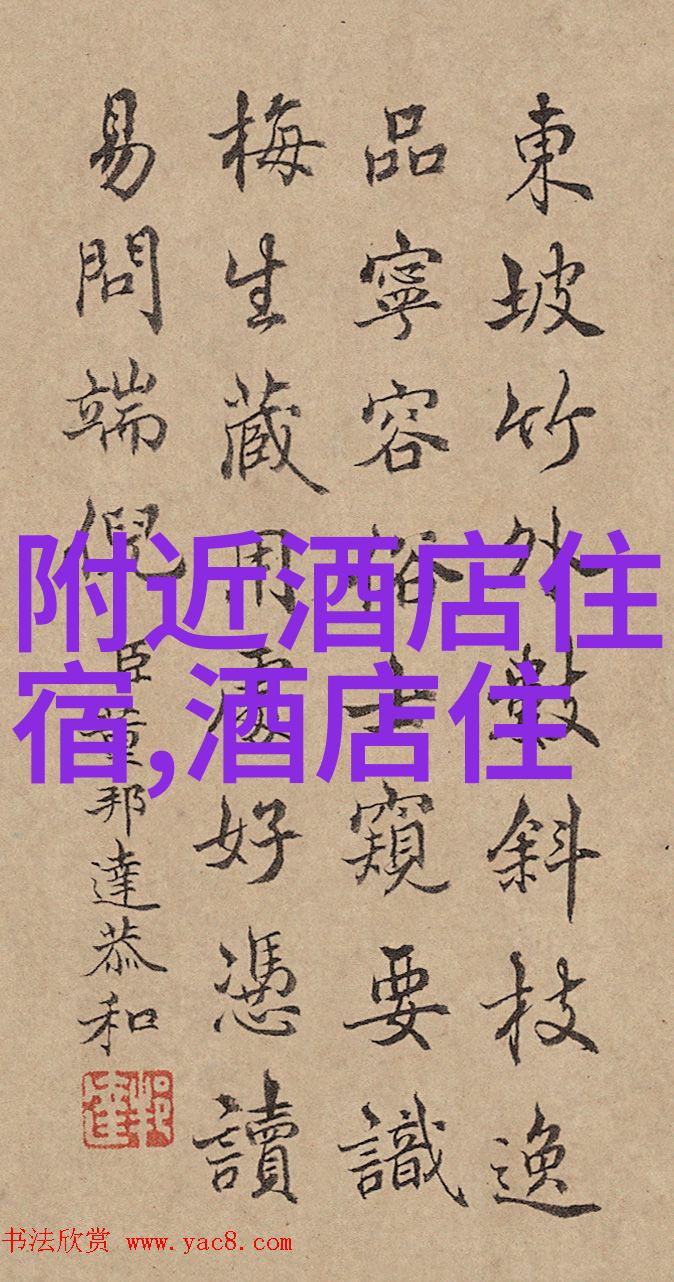 東坡竹外數斜枝逸
品寧容俗士窺要識
梅生藏用處好憑讀
易問端倪
臣董邦達恭和
附近酒店住
宿,酒店住
书法欣赏 www.yac8.com